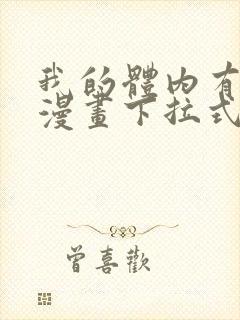 我的體內有
漫畫下拉式
曾喜歡